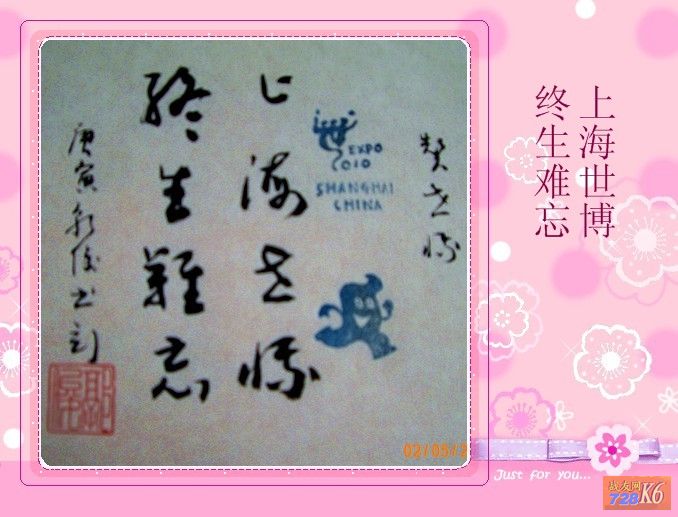 上海世博
终生难忘
赞世博
EXPO
2010
SHANGHAI
CHINA
上海世博
終生難忘
庚寅
02/05/2
Just for you...
战友网
728
K6